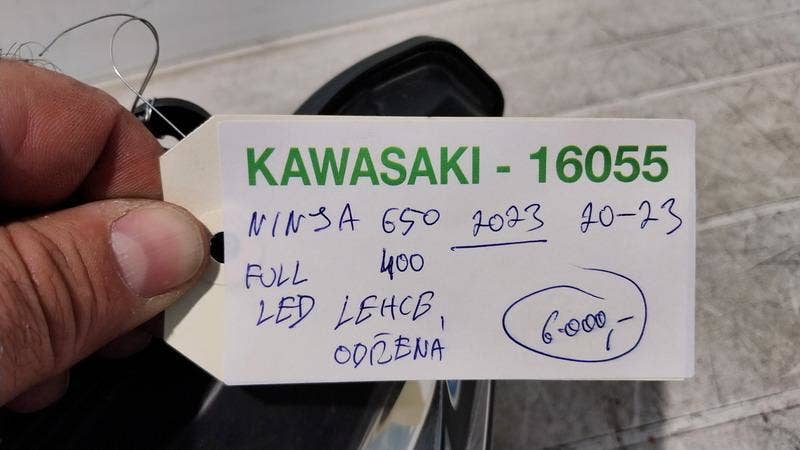 KAWASAKI - 16055
NINJA 650 2023 20-23
FULL 400
LED LEHCE
ODŘENÁ
6.000,-